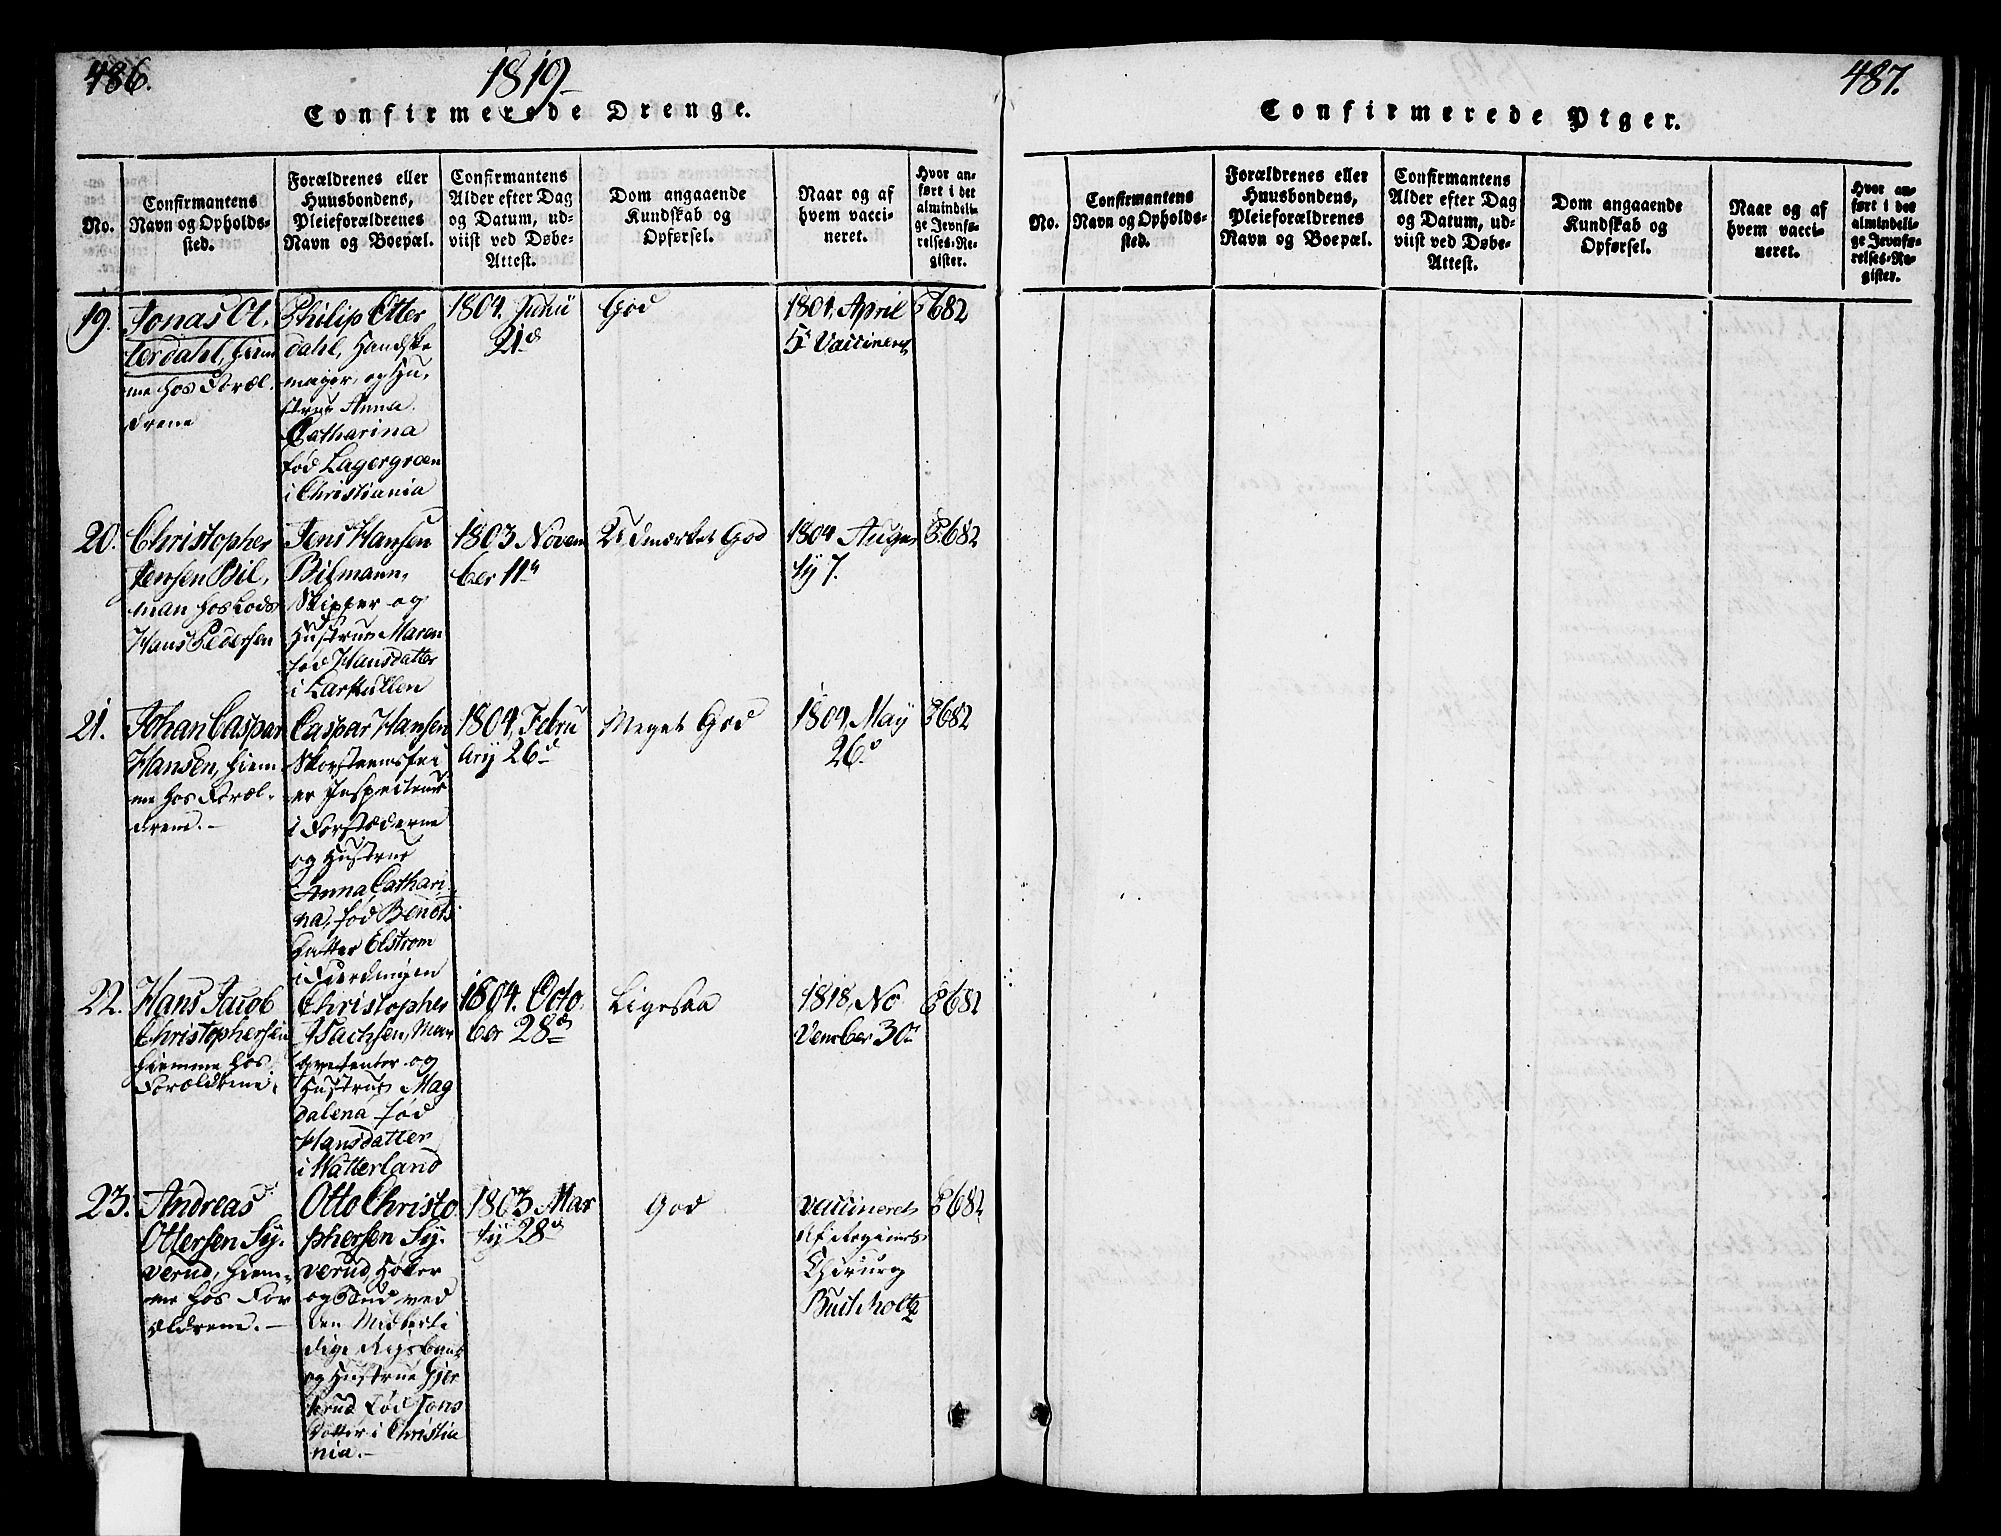 486.
1819
Confirmerede Drenge.
No.
Confirmantens
Navn og Opholds-
sted.
Forældrenes eller
Huusbondens,
Pleieforældrenes
Navn og Boepæl.
Confirmantens
Alder efter Dag
og Datum, ud-
viist ved Døbe-
Attest.
Dom angaaende
Kundskab og
Opførsel.
Naar og af
hvem vacci-
neret.
Hvor an-
ført i det
almindeli-
ge Jevnfø-
relses-Re-
gister.
19.
Jonas Ot.
terdahl, hiem
me hos Foræl.
drene
Philip Otter
dahl, Handske
mager, og Hu.
strue Anna
Catharina
fød Lagergræn
i Christiania
1804. Junii
21d
God
1804. April
5. Vaccineret
P682
20.
Christopher
Jensen Bil,
man hos Lods
Hans Pedersen
Jens Hansen
Bilmann,
Skipper og
Hustrue Maren
fød Hansdatter
i Larkullen
1803 Novem
ber 11
Udmærket God
1804 Augu
sty 7.
P682
21.
Johan Caspar
Hansen, hiem
me hos Foræl-
drene.-
Caspar Hansen
Skorsteensfei
er Inspecteur
i Forstæderne
og Hustrue
Anna Cathari-
na, fød Benets
datter Elstrom
i Fierdingen
1804, Febru
ary 26d
Meget God
1804 May
26d
P682
22.
Hans Jacob
Christophersen
hiemme hos
Forældrene.
Christopher
Isachsen, Mar
qvetenter og
Hustrue Mag
dalena fød
Hansdatter
i Watterland
1804. Octo
ber 28de
Ligesaa
1818, No
vember 30
P682
23.
Andreas
Ottersen Sy-
verud, hiem-
me hos For
ældrene.-
Otto Christo
phersen Sy.
verud, Høker
og Bud ved
den Midlerti
dige Rigsbank
og Hustrue Gjer
trud fød Jons
datter i Christia
nia.-
1803 Mar
ty 28d
God
vaccineret
af Regiments
Chirurg
Buchholtz
P682
487.
Confirmerede Piger.
No.
Confirmantens
Navn og Opholds-
sted.
Forældrenes eller
Huusbondens,
Pleieforældrenes
Navn og Boepæl.
Confirmantens
Alder efter Dag
og Datum, ud-
viist ved Døbe-
Attest.
Dom angaaende
Kundskab og
Opførsel.
Naar og af
hvem vacci-
neret.
Hvor an-
ført i det
almindeli-
ge Jevnfø-
relses-Re-
gister.